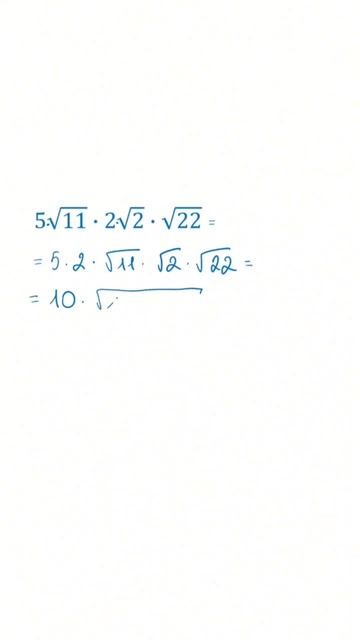 5√11 · 2√2 · √22 =
= 5 · 2 · √11 · √2 · √22 =
= 10 · √